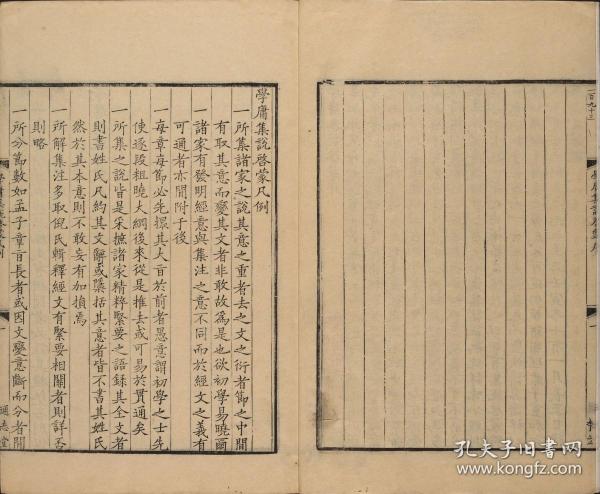 一百九十三
學庸集說啓蒙序
一
學庸集說啓蒙凡例
一所集諸家之說其意之重者去之文之衍者節之中間
有取其意而變其文者非敢故為是也欲初學易曉爾
一諸家有發明經意與集注之意不同而於經文之義有
可通者亦間附于後
一每章每節必先撮其大㫖於前者愚意謂初學之士先
使逐段粗曉大綱後來從是推去或可易於貫通矣
一所集之說皆是采摭諸家精粹緊要之語錄其全文者
則書姓氏凡約其文辭或櫽括其意者皆不書其姓氏
然於其本意則不敢妄有加損焉
一所解集注多取倪氏輯釋經文有緊要相關者則詳否
則略
一所分節數如孟子章㫖長者或因文變意斷而分者間
學庸集說啓蒙凡例
一
通志堂
孔夫子旧书网
www.kongfz.com